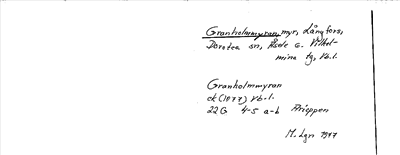 Granholmmyran, myr, Långfors,
Dorotea sn, Åsele o. Vilhel-
mina tg, Vb.l.
Granholmmyran
ek (1877) Vb.l.
22G 4-5 a-b Arieppen
M. Lgn 1977